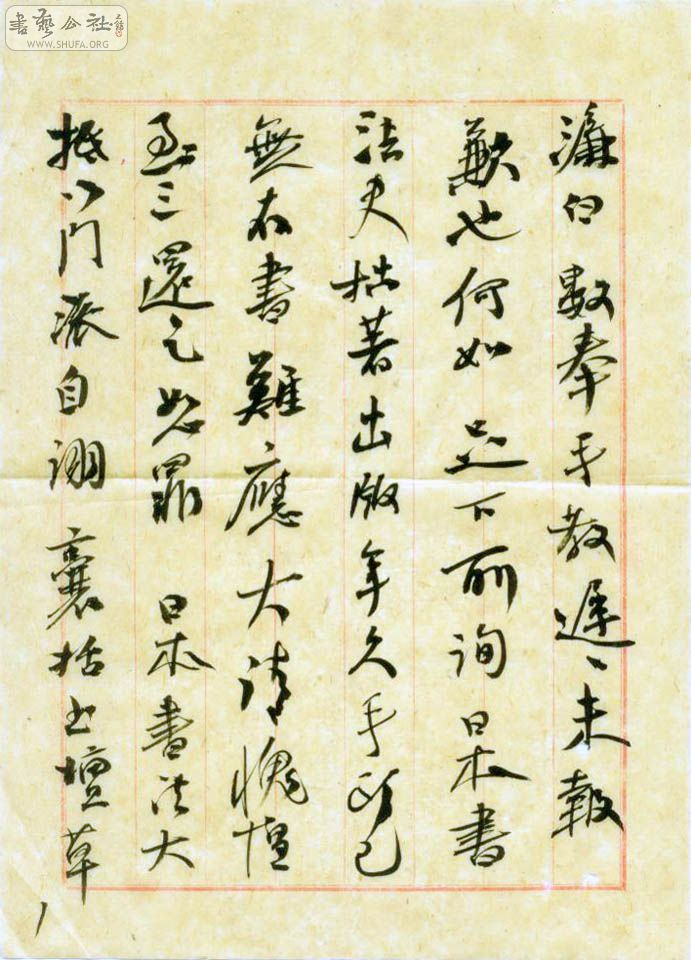 書藝公社
WWW.SHUFA.ORG
濂白數奉手教遲〻未報
歉也何如足下所詢日本書
法史拙著出版年久手頭已
無存書難應大請愧
三還乞恕罪日本書法大
抵以門派自詡囊括書壇草
1